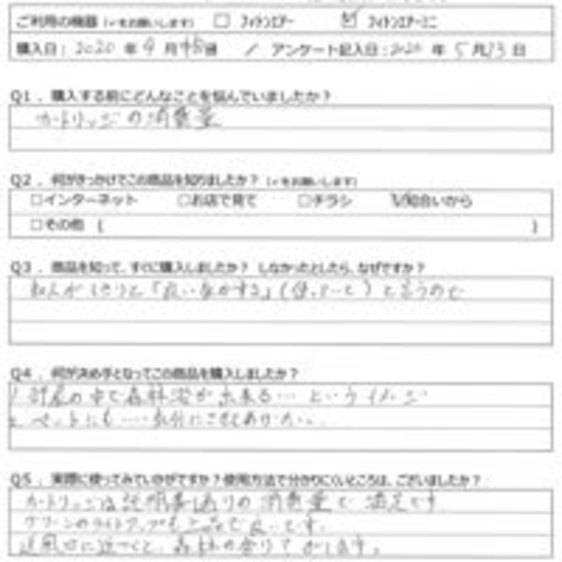 ご利用の機器(✓をお願いします) □ フィトンエアー ☑ フィトンエアーミニ
購入日:2020 年 9 月 日 / アンケート記入日:2020 年 5 月 13 日
Q1.購入する前にどんなことを悩んでいましたか?
カートリッジの消費量
Q2.何がきっかけでこの商品を知りましたか?(✓をお願いします)
□インターネット □お店で見て □チラシ ☑知合いから
□その他 ( )
Q3.商品を知って、すぐに購入しましたか? しなかったとしたら、なぜですか?
「良い と言うので
Q4.何が決め手となってこの商品を購入しましたか?
1. 部屋の中で森林浴が出来る…というイメージ
2. ペットにも……
Q5.実際に使ってみていかがですか?使用方法で分かりにくいところは、ございましたか?
カートリッジは説明書通りの消費量で満足です
グリーンのライトアップも で良いです。
送風口に近づくと、森林の香りてがします。